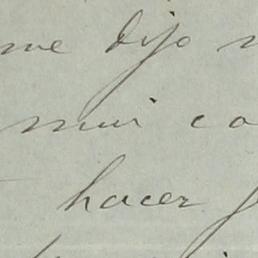 me dijo
mui co
hacer